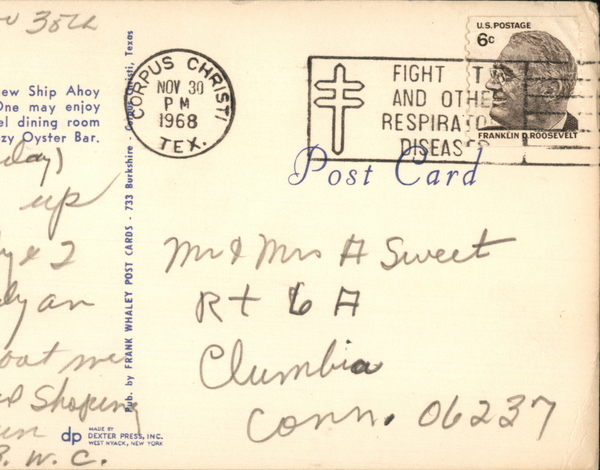 30th
ew Ship Ahoy
One may enjoy
el dining room
zy Oyster Bar.
day)
up
y & 2
ly an
oat me
d Shoping
un
B. W. C.
Pub. by FRANK WHALEY POST CARDS - 733 Burkshire - Corpus Christi, Texas
dp MADE BY
DEXTER PRESS, INC.
WEST NYACK, NEW YORK
CORPUS CHRISTI
NOV 30
PM
1968
TEX.
FIGHT T
AND OTHE
RESPIRATO
DISEAS
U.S. POSTAGE
6c
FRANKLIN D. ROOSEVELT
Post Card
Mr & Mrs A Sweet
Rt 6 A
Clumbia
Conn. 06237